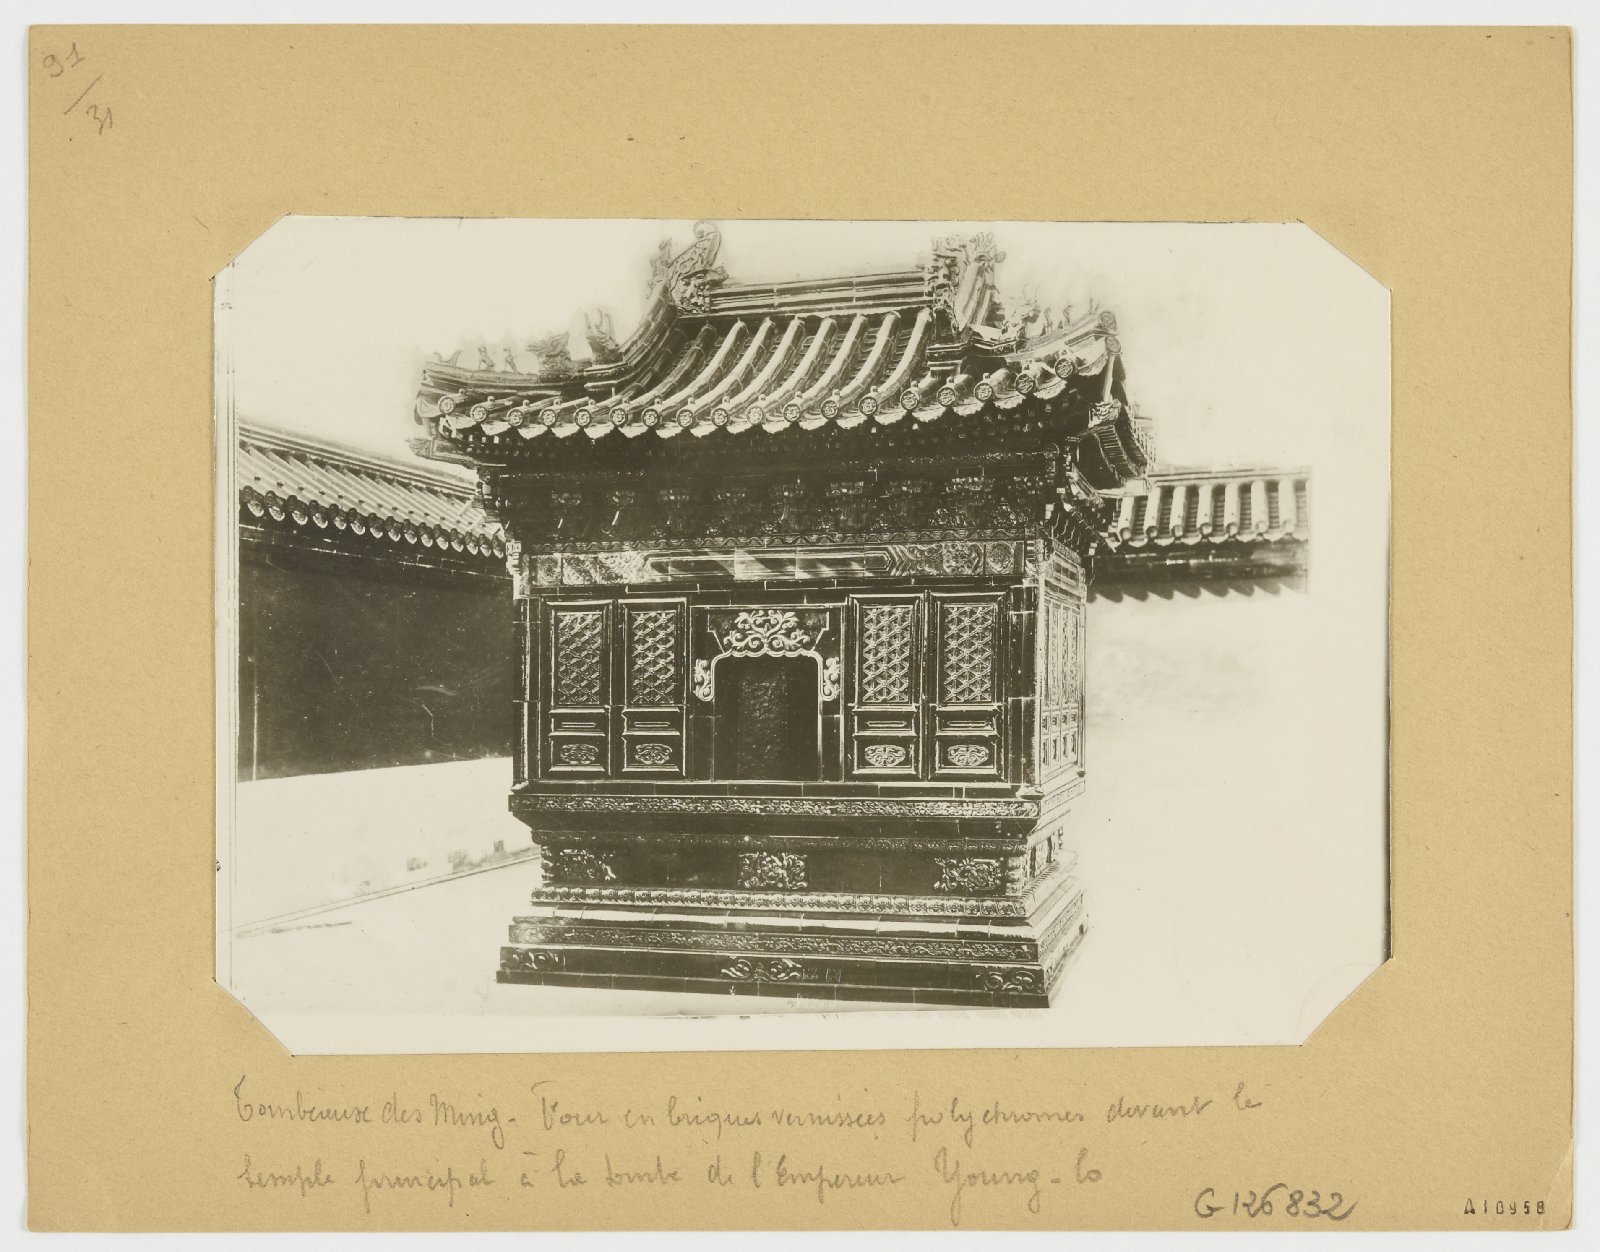 91
/
31
Tombeaux des Ming - Four en briques vernissées polychromes devant le
temple principal à la tombe de l'Empereur Young-lo
G126832
A10958